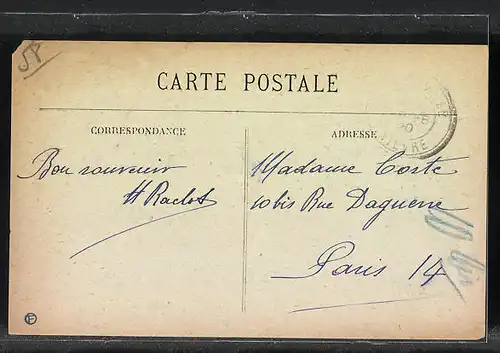 58
CARTE POSTALE
CORRESPONDANCE
ADRESSE
Bon souvenir
H Raclot
Madame Coste
10 bis Rue Daguerre
Paris 14
NIÈVRE